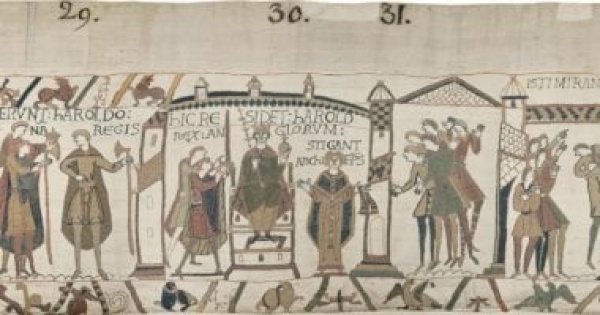 29. 30. 31.
ERVNT: hAROLDO:
NA REGIS
hIC RE SIDET: hAROLD
REX: AN GLORVM:
STIGANT
ARChI EPS
ISTI MIRAN